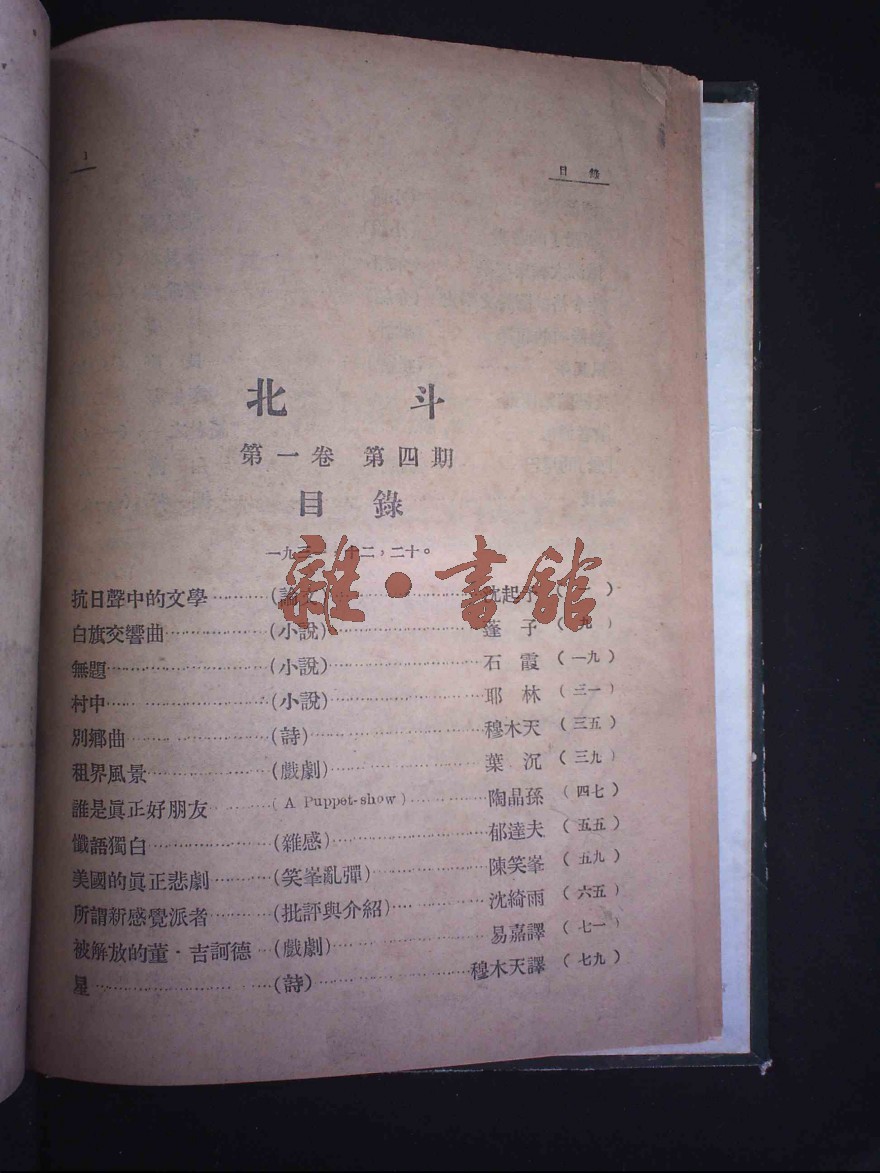 1
目錄
北斗
第一卷 第四期
目錄
一九三一,十二,二十。
雜·書館
抗日聲中的文學…………(論文)…………沈起予( )
白旗交響曲…………(小說)…………蓬子(九)
無題…………(小說)…………石霞(一九)
村中…………(小說)…………耶林(三一)
別鄉曲…………(詩)…………穆木天(三五)
租界風景…………(戲劇)…………葉沉(三九)
誰是眞正好朋友…………(A Puppet-show)…………陶晶孫(四七)
懺語獨白…………(雜感)…………郁達夫(五五)
美國的眞正悲劇…………(笑峯亂彈)…………陳笑峯(五九)
所謂新感覺派者…………(批評與介紹)…………沈綺雨(六五)
被解放的董·吉訶德…(戲劇)…………易嘉譯(七一)
星…………(詩)…………穆木天譯(七九)